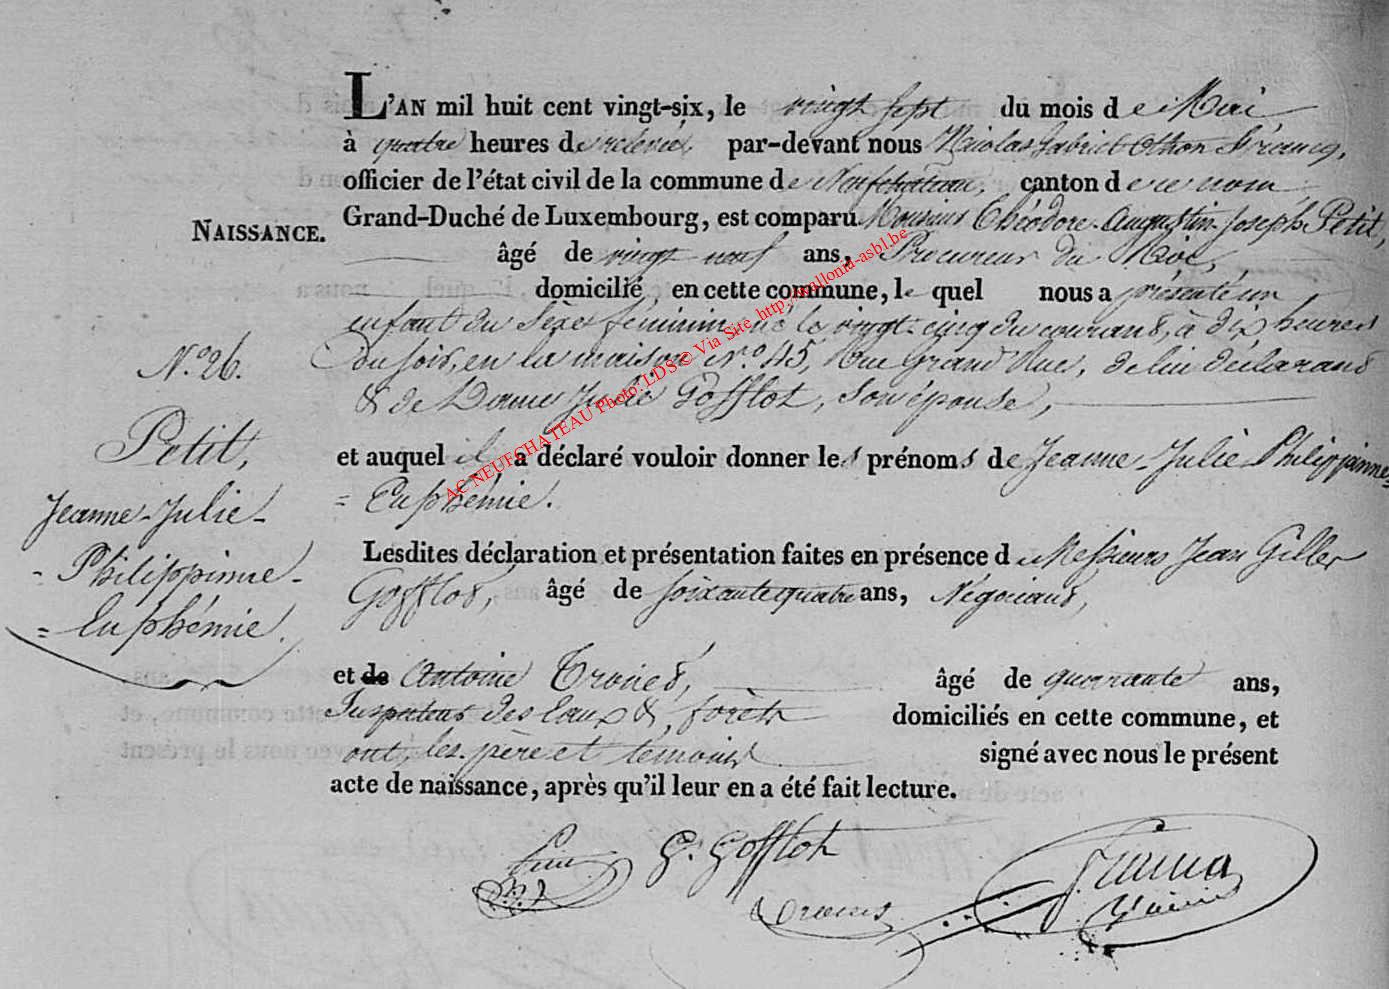 L'AN mil huit cent vingt-six, le vingt sept du mois de Mai
à quatre heures de relevée par-devant nous Nicolas Gabriel Othon Francq,
officier de l'état civil de la commune de Neufchateau, canton de ce nom
NAISSANCE. Grand-Duché de Luxembourg, est comparu Monsieur Théodore-Augustin-Joseph Petit,
âgé de vingt neuf ans, Procureur du Roi,
domicilié en cette commune, le quel nous a présenté un
enfant du Sexe féminin, né le vingt-cinq du courant, à dix heures
N.º 26. du soir, en la maison Nº 45, Rue Grand'Rue, de lui déclarant
& de Dame Julie Gofflot, son épouse,
Petit, et auquel il a déclaré vouloir donner les prénoms de Jeanne-Julie-Philippinne-
Jeanne-Julie- = Euphémie.
- Philippinne- Lesdites déclaration et présentation faites en présence de Messieurs Jean Gilles
= Euphémie. Gofflot, âgé de soixante quatre ans, Négociant,
et de Antoine âgé de quarante ans,
Inspecteur des Eaux & forêts domiciliés en cette commune, et
ont, les père et témoins signé avec nous le présent
acte de naissance, après qu'il leur en a été fait lecture.
G. Gofflot
AC NEUFCHATEAU Photo: LDS © Via Site http://wallonia-asbl.be